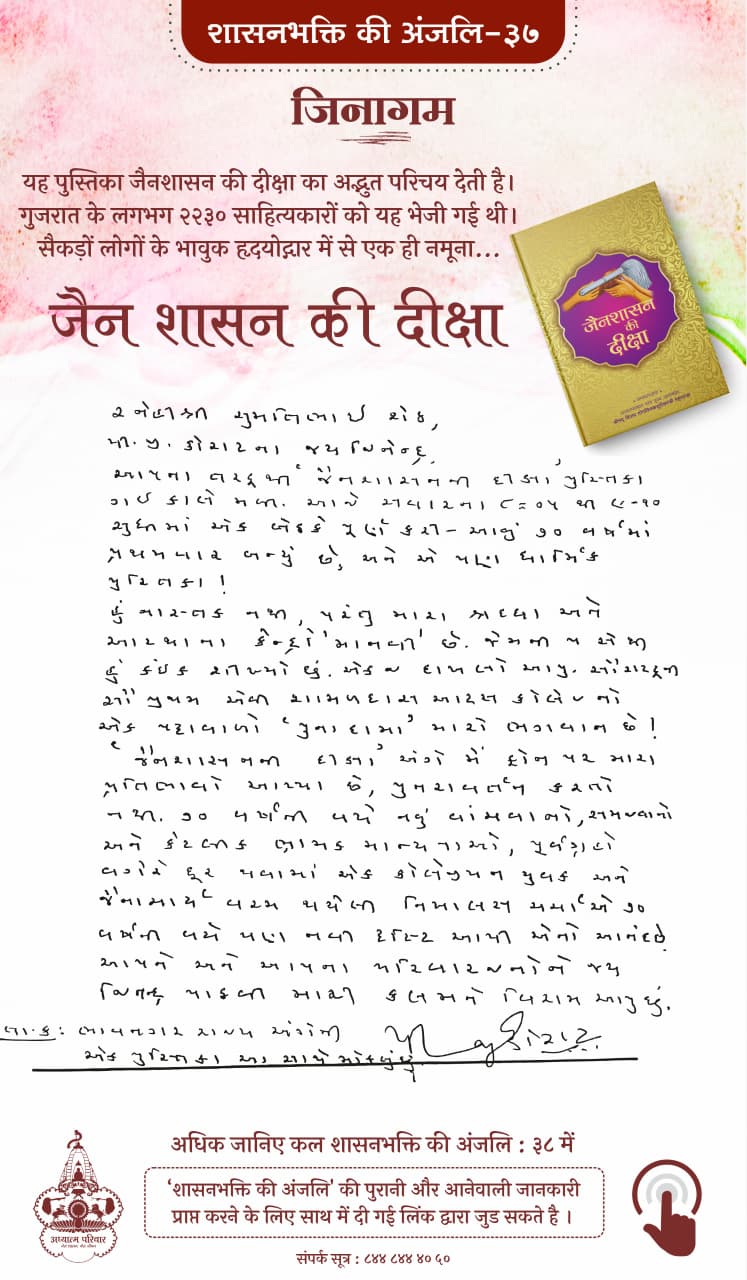 शासनभक्ति की अंजलि-३७
जिनागम
यह पुस्तिका जैनशासन की दीक्षा का अद्भुत परिचय देती है।
गुजरात के लगभग २२३० साहित्यकारों को यह भेजी गई थी।
सैकड़ों लोगों के भावुक हृदयोद्गार में से एक ही नमूना...
जैन शासन की दीक्षा
जैनशासन
की
दीक्षा
સ્નેહીશ્રી સુમતિભાઈ શેઠ,
પી. જી. કોરાટના જય જિનેન્દ્ર.
આપના તરફથી 'જૈનશાસનની દીક્ષા' પુસ્તિકા
ગઈ કાલે મળી. આજે સવારના ૮=૦૫ થી ૯-૧૦
સુધીમાં એક બેઠકે પૂર્ણ કરી - આવું ૭૦ વર્ષમાં
પ્રથમવાર બન્યું છે, અને એ પણ ધાર્મિક
પુસ્તિકા !
હું નાસ્તિક નથી, પરંતુ મારી શ્રદ્ધા અને
આસ્થાના કેન્દ્રો 'માનવી' છે. જેમની પાસેથી
હું કંઇક શીખ્યો છું. એક જ દાખલો આપુ. સૌરાષ્ટ્રની
સૌ પ્રથમ એવી શામળદાસ આર્ટસ કોલેજનો
એક પટાવાળો 'પુનાદામા' મારો ભગવાન છે !
'જૈનશાસનની દીક્ષા' અંગે મેં ફોન પર મારા
પ્રતિભાવો આપ્યા છે, પુનરાવર્તન કરતો
નથી. ૭૦ વર્ષની વયે નવું વાંચવાનો, સમજવાનો
અને કેટલીક ભ્રામક માન્યતાઓ, પૂર્વગ્રહો
વગેરે દૂર થવામાં એક કોલેજીયન યુવક અને
જૈનાચાર્ય વચ્ચે થયેલી નિખાલસ ચર્ચાએ ૭૦
વર્ષની વયે પણ નવી દૃષ્ટિ આપી એનો આનંદ છે.
આપને અને આપના પરિવારજનોને જય
જિનેન્દ્ર પાઠવી મારી કલમને વિરામ આપુ છું.
તા.ક : ભાવનગર રાજ્ય અંગેની
એક પુસ્તિકા આ સાથે મોકલું છું
अधिक जानिए कल शासनभक्ति की अंजलि : ३८ में
'शासनभक्ति की अंजलि' की पुरानी और आनेवाली जानकारी
प्राप्त करने के लिए साथ में दी गई लिंक द्वारा जुड सकते है ।
अध्यात्म परिवार
संपर्क सूत्र : ८४४ ८४४ ४० ५०